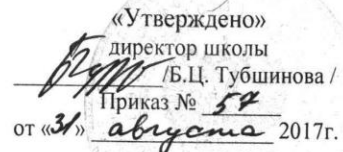 «Утверждено»
директор школы
/Б.Ц. Тубшинова /
Приказ № 57
от «31» августа 2017г.